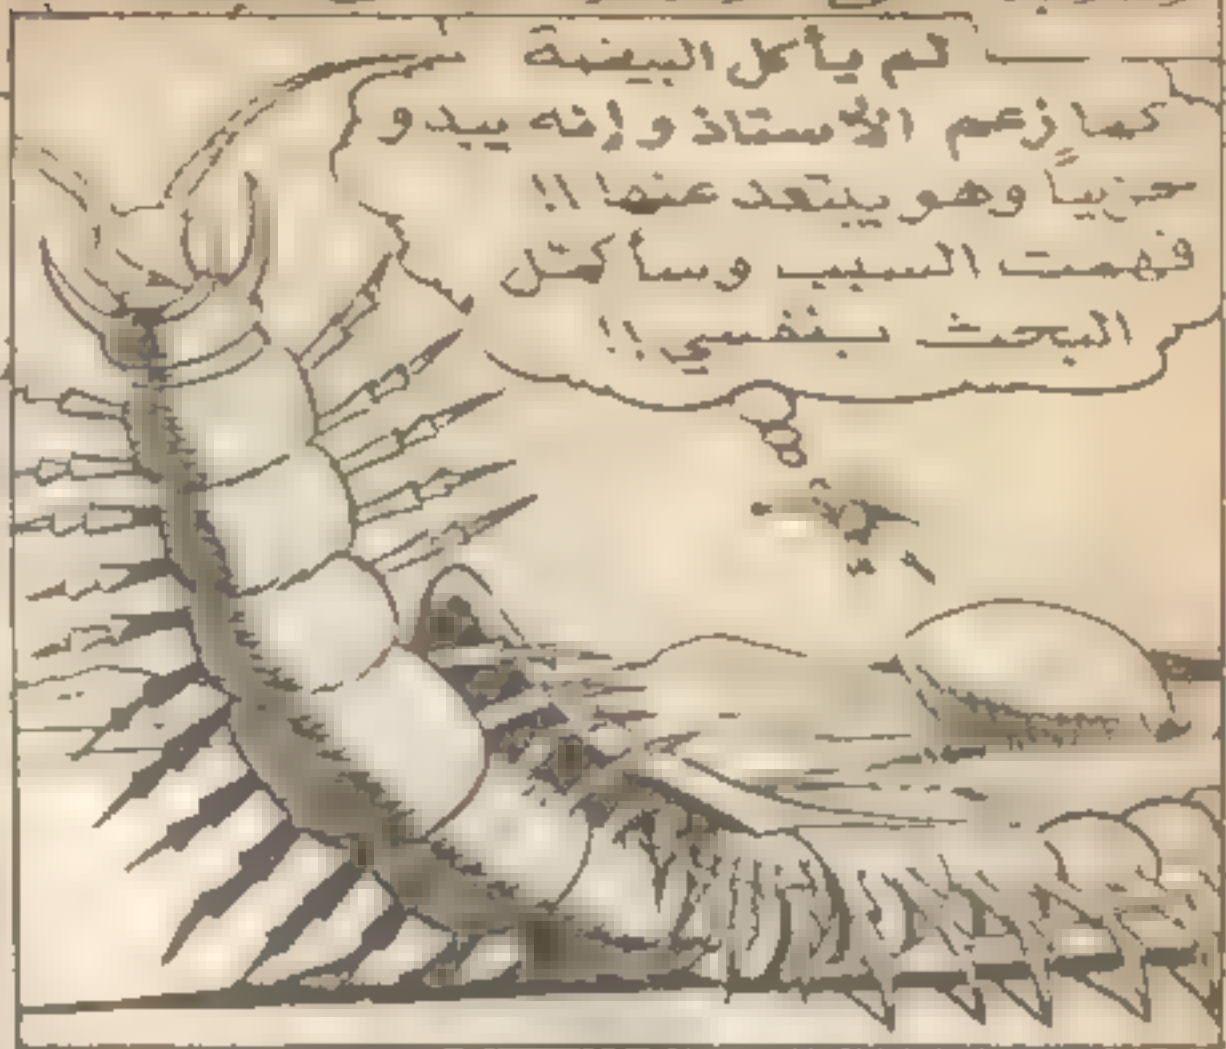 لم يأكل البيضة
كما زعم الأستاذ وإنه يبدو
حزيناً وهو يبتعد عنها !!
فهمت السبب وسأكمل
البحث بنفسي !!